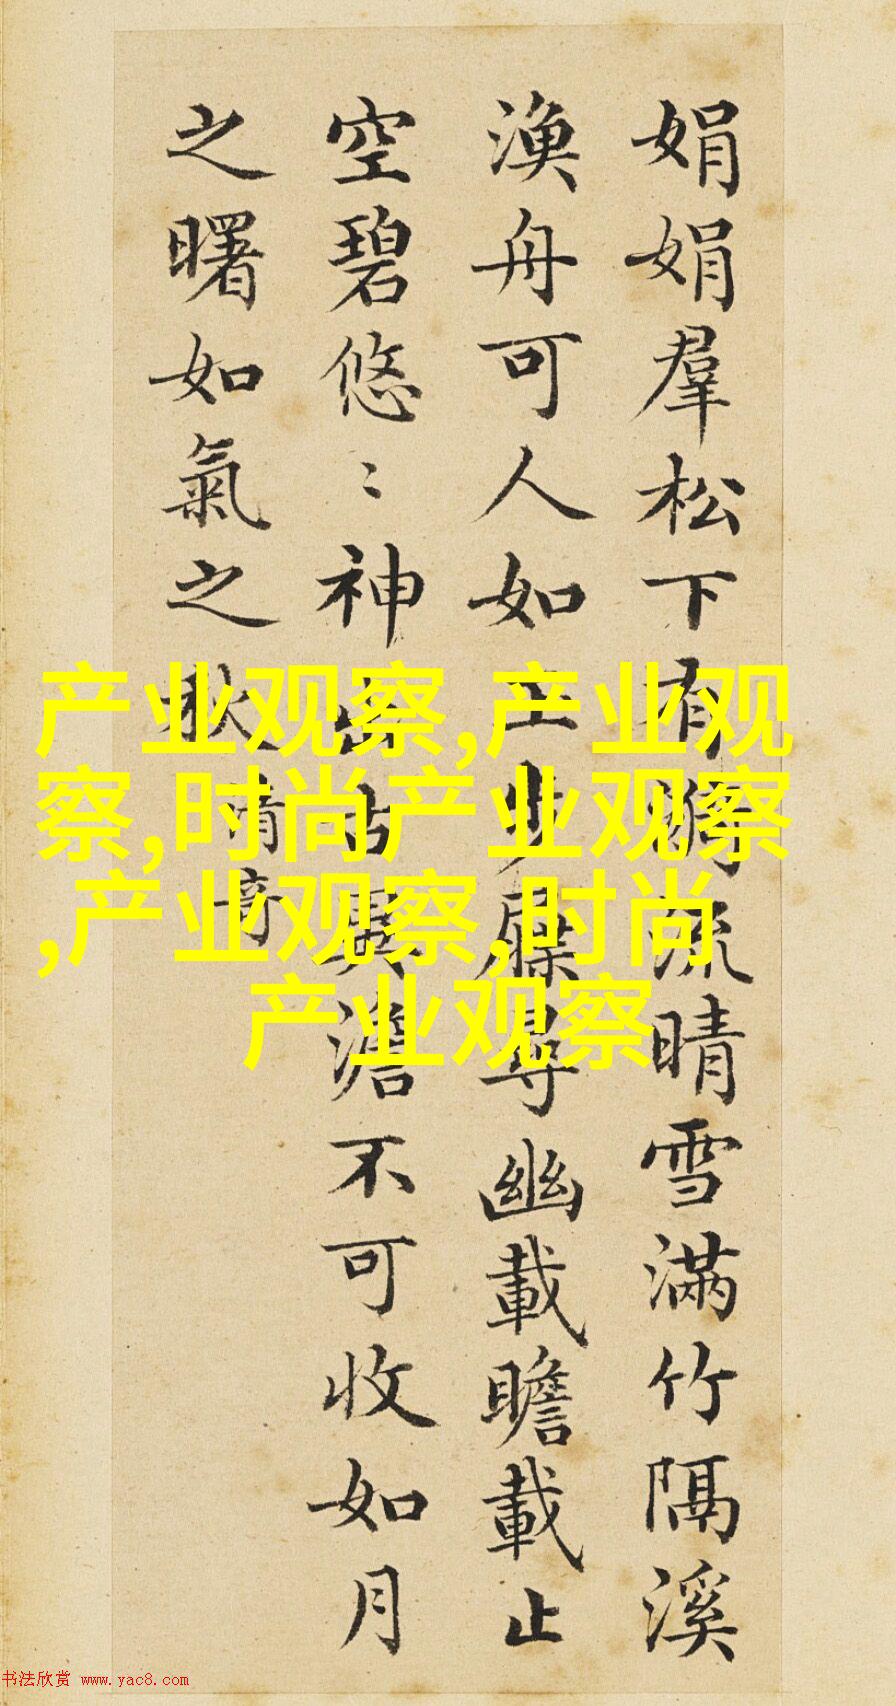 娟娟羣松下有漪流晴雪滿竹隔溪
漁舟可人如玉步屧尋幽載瞻載止
空碧悠〻神出古異澹不可收如月
之曙如氣之秋
清奇
产业观察,产业观
察,时尚产业观察
,产业观察,时尚
产业观察
书法欣赏 www.yac8.com